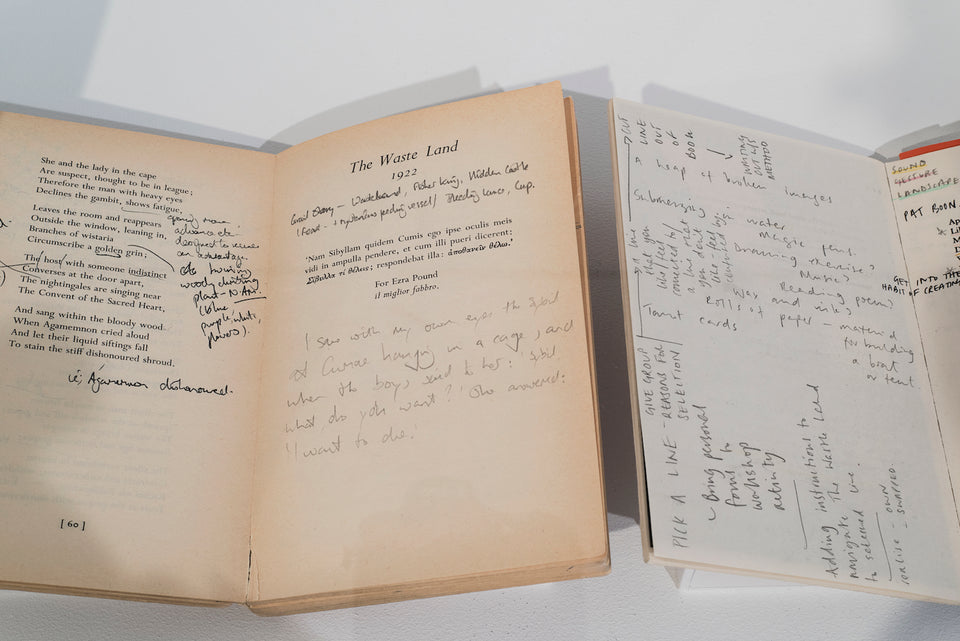 She and the lady in the cape
Are suspect, thought to be in league;
Therefore the man with heavy eyes
Declines the gambit, shows fatigue,
Leaves the room and reappears
Outside the window, leaning in,
Branches of wistaria
Circumscribe a golden grin;
The host with someone indistinct
Converses at the door apart,
The nightingales are singing near
The Convent of the Sacred Heart,
And sang within the bloody wood
When Agamemnon cried aloud
And let their liquid siftings fall
To stain the stiff dishonoured shroud.
opening move
advance etc.
designed to secure
an advantage
twining
woody climbing
plant – N. Am.
(blue
purple, white,
flowers).
ie; Agamemnon dishonoured.
[ 60 ]
The Waste Land
1922
Grail Story – Wasteland, Fisher King, Hidden Castle
feeding vessel / Bleeding Lance, Cup.
'Nam Sibyllam quidem Cumis ego ipse oculis meis
vidi in ampulla pendere, et cum illi pueri dicerent:
Σίβυλλα τί θέλεις; respondebat illa: ἀποθανεῖν θέλω.'
For Ezra Pound
il miglior fabbro.
I saw with my own eyes the Sibil
at Cumae hanging in a cage, and
when the boys said to her: 'Sibil
what do you want?' She answered:
'I want to die.'
CUT
A LINE
OUT OF
BOOK
WRITING
OUT W/S
METHOD
A heap of broken images
Submerging in water
Magic pens.
Drowning themes?
Music?
Reading poem,
and inks
Rolls of paper – material
for building
a boat
or tent
Tarot cards
A line
that you
like/feel
connected w/
a line that
you don't
like – feel no
connection w/
GIVE GROUP
REASONS FOR
SELECTION
PICK A LINE
Bring personal
poems to
workshop
activity
Adding instructions to
navigate The Waste Land
to selected line.
OWN
SWAPPED
SOUND
LANDSCAPE
PAT BOON
GET
HABIT
INTO THE
OF CREATING